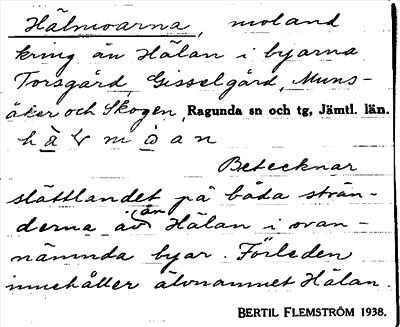 Hälmoarna, moland
kring än Hälan i byarna
Torsgård, Gisselgård, Muns-
åker och Skogen, Ragunda sn och tg, Jämtl. län.
Betecknar
slättlandet på båda strän-
derna av än Hälan i ovan-
nämnda byar. Förleden
innehåller älvnamnet Hälan.
BERTIL FLEMSTRÖM 1938.